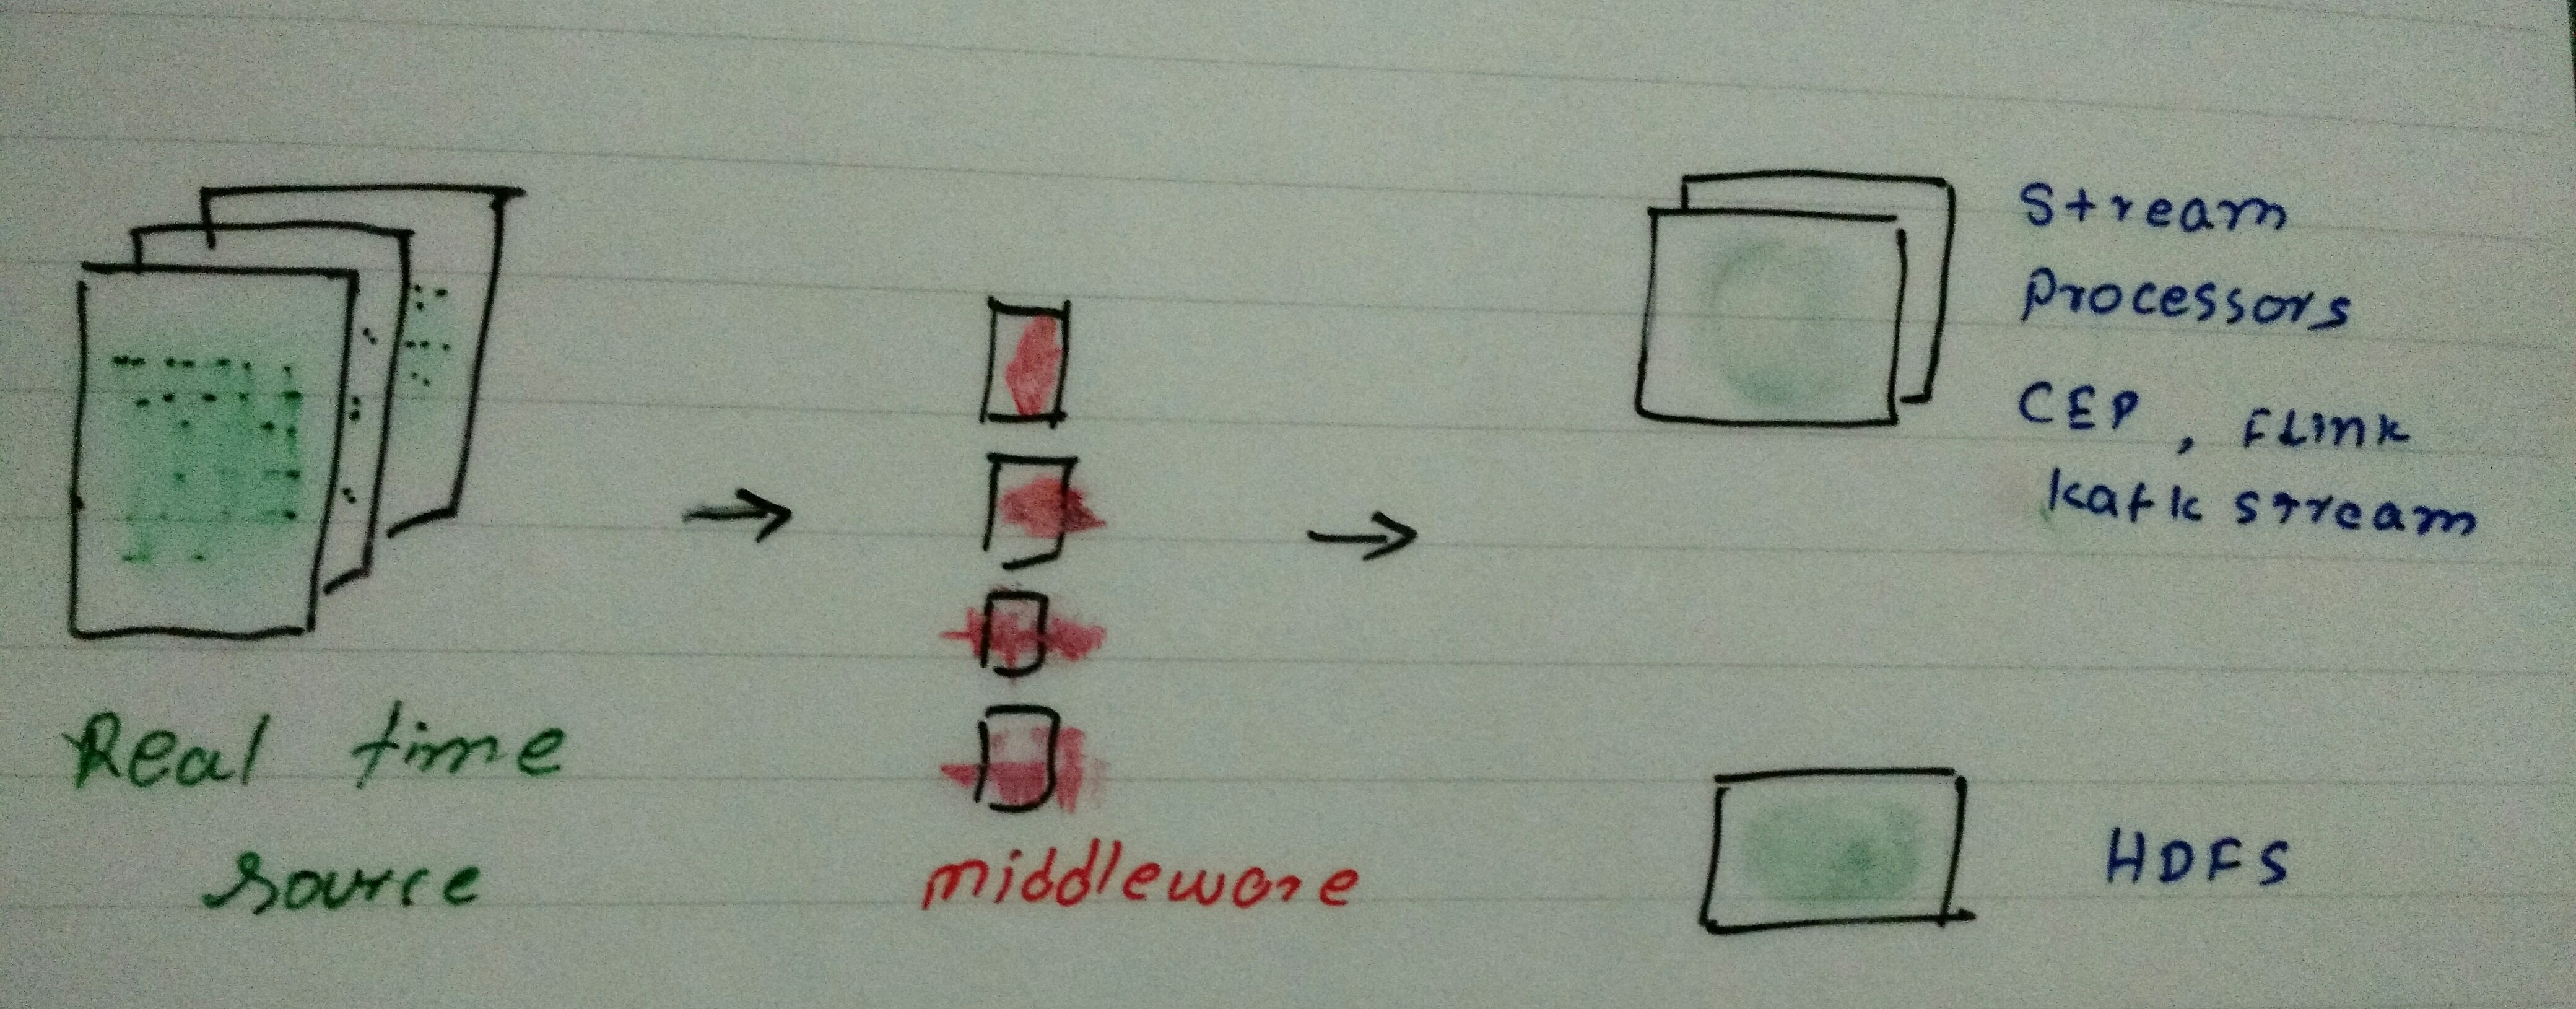 Real time
source
middleware
Stream
Processors
CEP, FLink
Kafk stream
HDFS